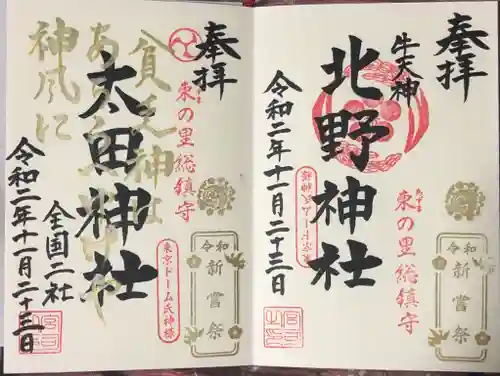 奉拝
牛天神
北野神社
令和二年十一月二十三日
東の里総鎮守
あずま
東京ドーム氏神様
令和
新嘗祭
奉拝
東の里総鎮守
貧乏神は
太田神社
神風に
全国二社
令和二年十一月二十三日
東京ドーム氏神様
令和
新嘗祭